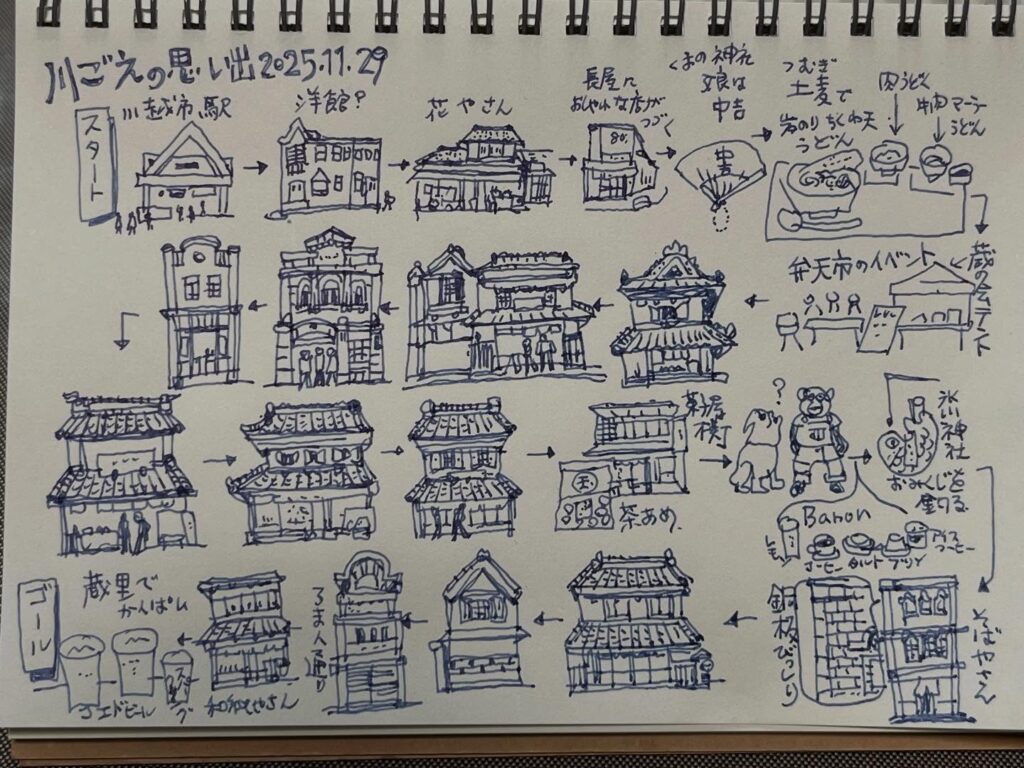 川ごえの思い出 2025.11.29
スタート
川越市駅
洋館？
花やさん
長屋に
おしゃれな店が
つづく
くまの神社
娘は
中吉
吉
つむぎ
土麦で
岩のりちくわ天
うどん
肉うどん
牛肉
うどん
蔵の
弁天市のイベント
茶屋
横丁
茶あめ
?
氷川神社
おみくじを
釣る
Banon
レモン
コーヒー
タルト
プリン
アイス
コーヒー
そばやさん
銅板びっくり
ろまん通り
和
蔵里で
かんぱい
コエドビール
ゴール